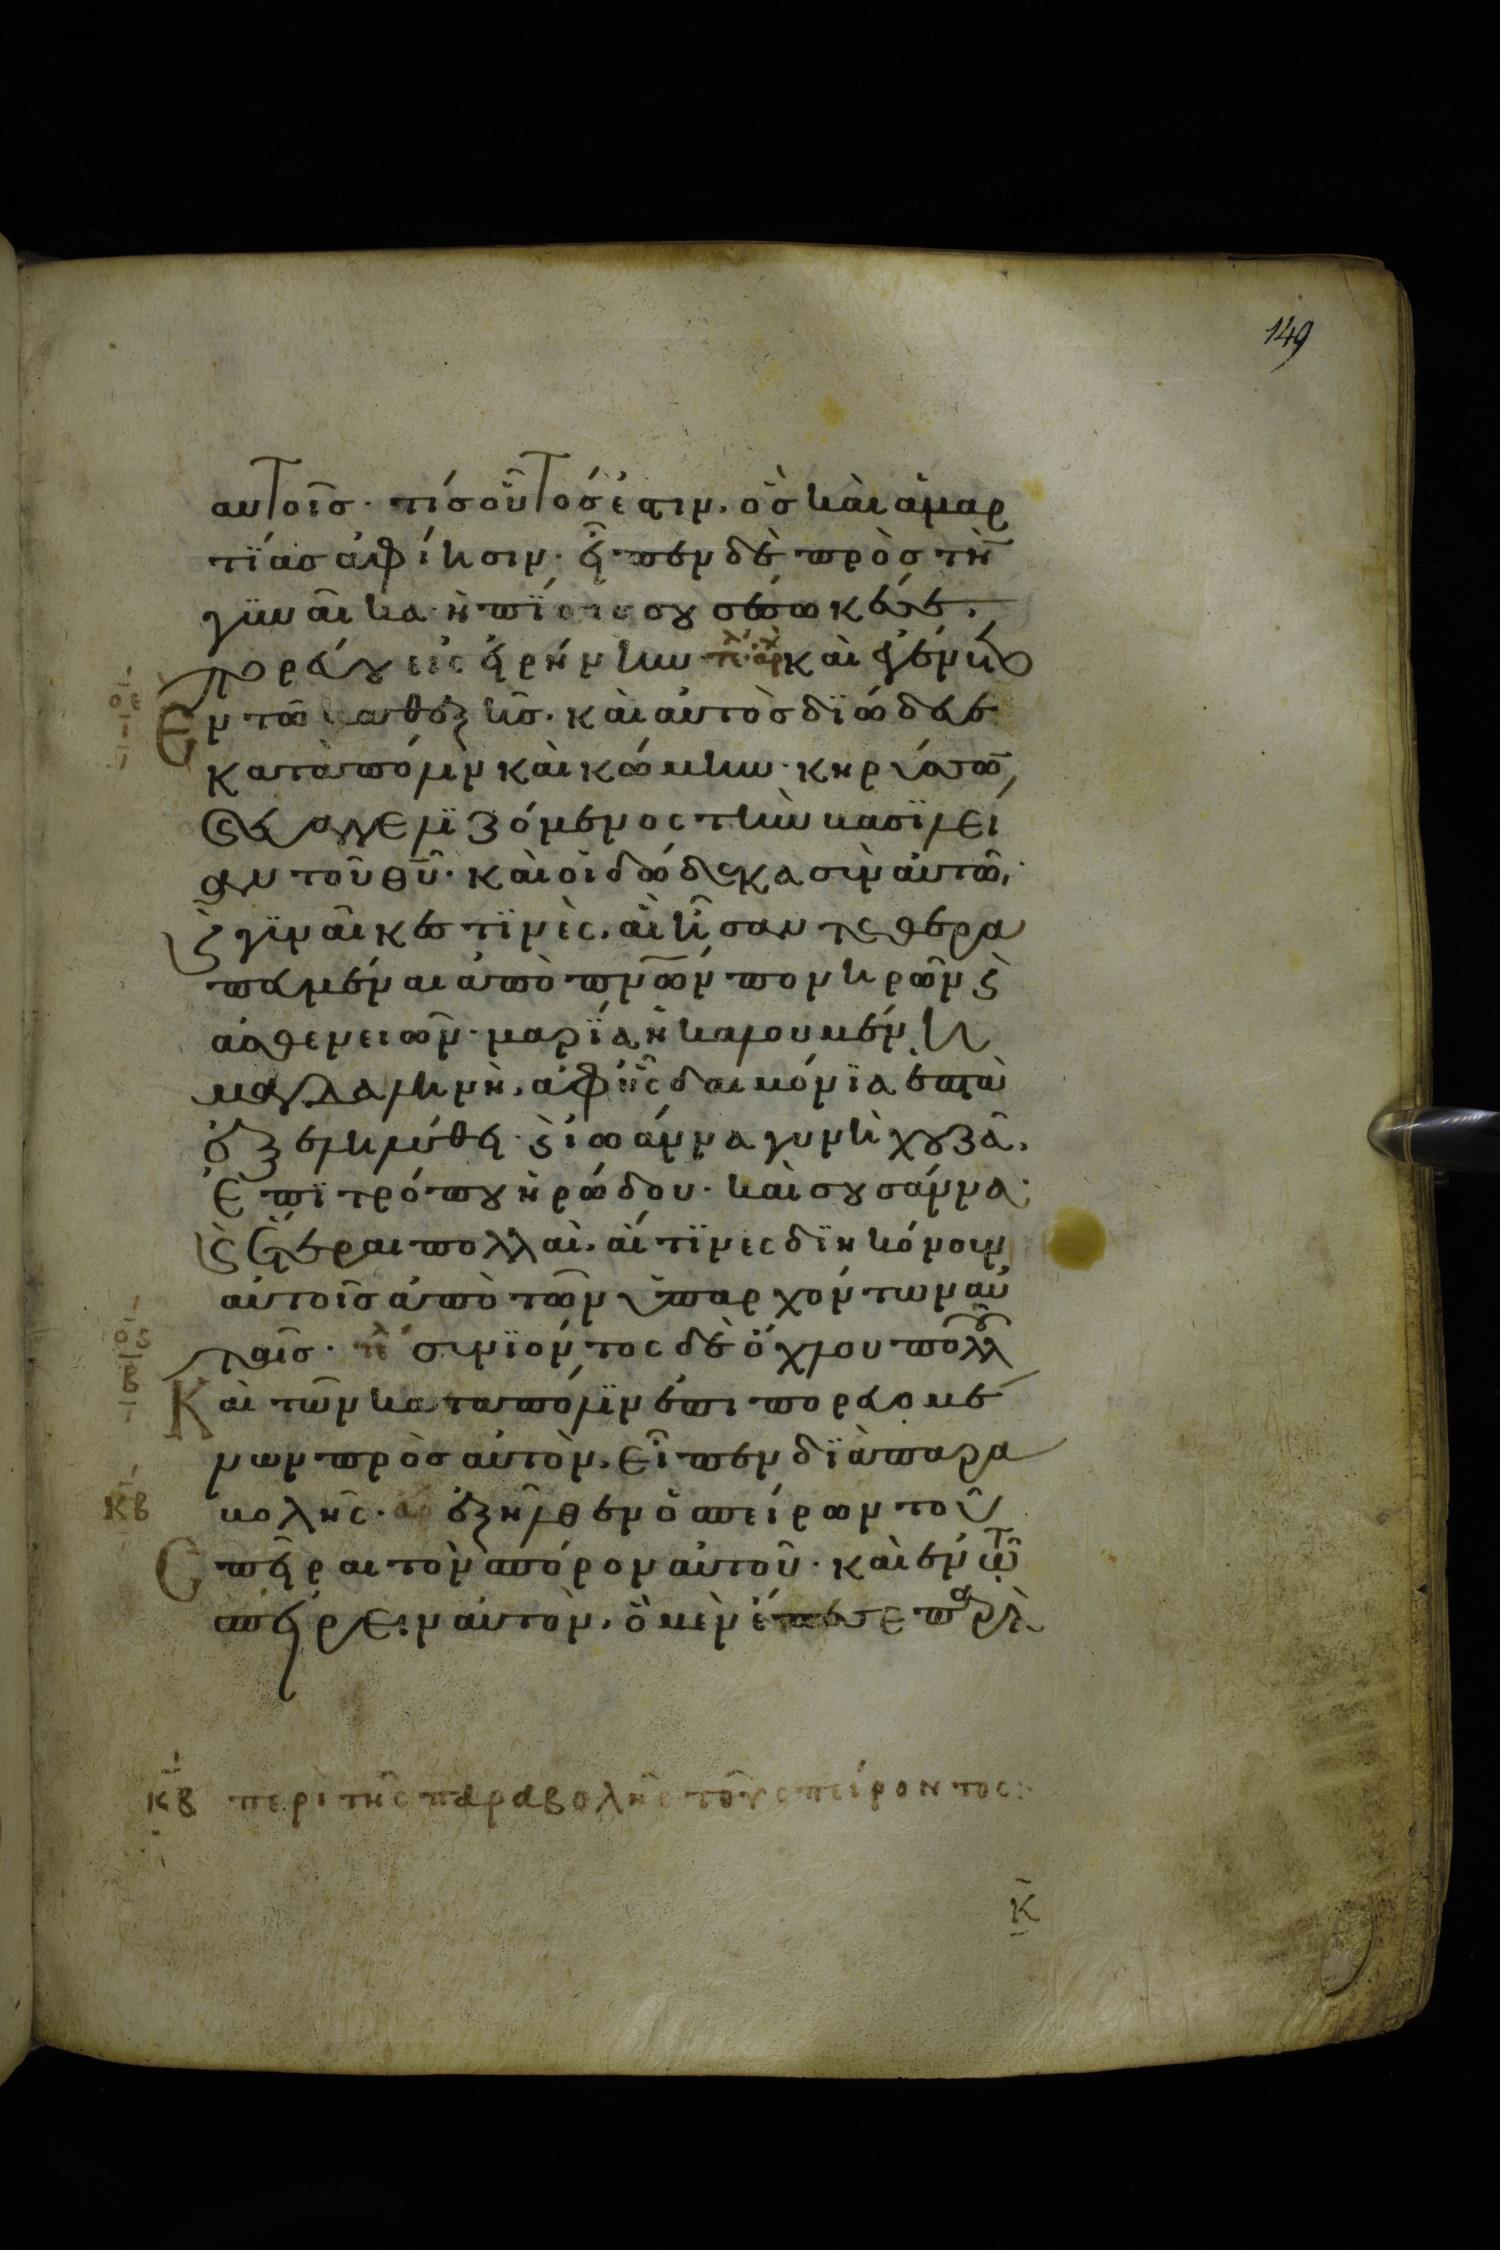 149
αυτοῖσ· τίσ οὗτόσ ἐστιν, ὃσ καὶ ἁμαρ
τίασ ἀφίησιν· εἶπεν δὲ πρὸσ τὴν
γυναῖκα ἡ πίστις σου σέσωκέ σε,
πορεύου εἰς εἰρήνην τε λ αρχ καὶ ἐγένετο
οε Ἐν τῶ καθεξῆσ· καὶ αὐτὸσ διώδευε
κατὰ πόλιν καὶ κώμην· κηρύσσων,
εὐαγγελιζόμενος τὴν βασιλεί
αν τοῦ θῦ· καὶ οἱ δώδεκα σὺν αὐτῶ,
ϛ γυναῖκεσ τινὲς, αἳ ἦσαν τεθερα
πευμέναι ἀπὸ πνῶν πονηρῶν ϛ
ἀσθενειῶν· μαρία ἡ καλουμένη
μαγδαληνὴ, ἀφ' ἧς δαιμόνια ἑπτὰ
ἐξεληλύθει· ϛ ἰωάννα γυνὴ χουζᾶ,
ἐπιτρόπου ἡρώδου· καὶ σουσάννα·
ϛ ἕτεραι πολλαὶ, αἵτινες διηκόνουν
αὐτοῖσ ἀπὸ τῶν ὑπαρχόντων αὐ
ταῖσ· τε συνϊόντος δὲ ὄχλου πολλοῦ
οϛ β Καὶ τῶν κατα πόλιν ἐπιπορευομέ
νων πρὸσ αὐτὸν, εἶπεν διὰ παρα
κβ βολῆς· αρ ἐξῆλθεν ὁ σπείρων τοῦ
Σπεῖραι τὸν σπόρον αὐτοῦ· καὶ ἐν τῶ
σπείρειν αὐτὸν, ὃ μὲν ἔπεσε παρὰ
κβ περὶ τῆς παραβολῆς τοῦ σπείροντος:
κ